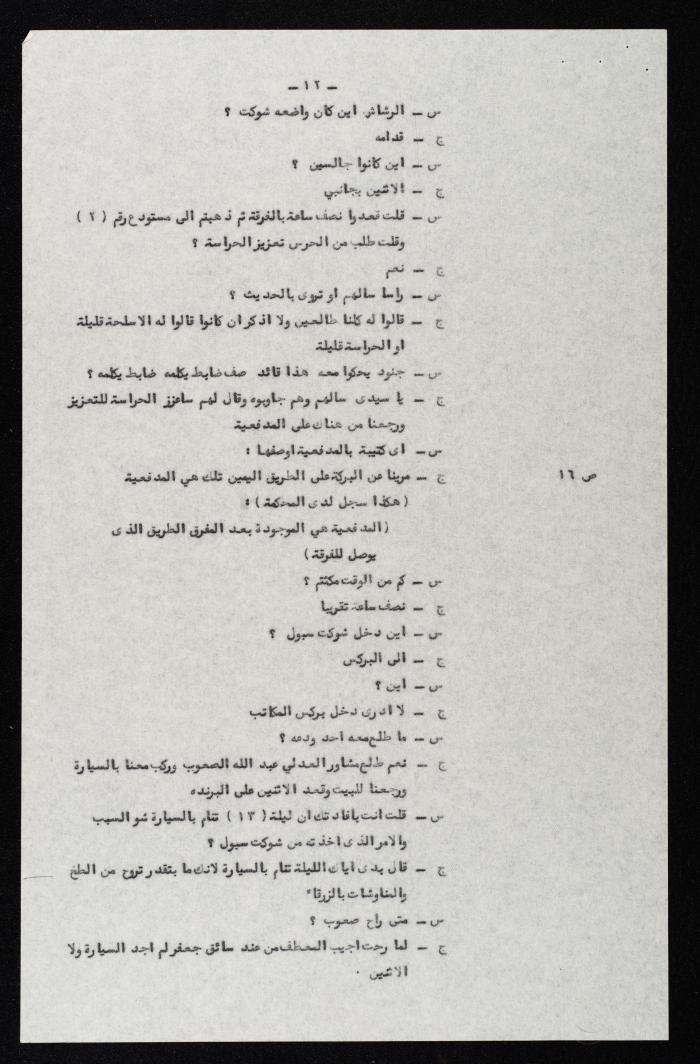 - ١٢ -
س - الرشاش اين كان واضعه شوكت ؟
ج - قدامه
س - اين كانوا جالسين ؟
ج - الاثنين بجانبي
س - قلت قعدوا نصف ساعة بالغرفة ثم ذهبتم الى مستودع رقم ( ٢ )
وقلت طلب من الحرس تعزيز الحراسة ؟
ج - نعم
س - راسا سالهم او تروى بالحديث ؟
ج - قالوا له كلنا طالعين ولا اذكر ان كانوا قالوا له الاسلحة قليلة
او الحراسة قليلة
س - جنود يحكوا معه هذا قائد صف ضابط يكلمه ضابط يكلمه ؟
ج - يا سيدى سالهم وهم جاوبوه وقال لهم ساعزز الحراسة للتعزيز
ورجعنا من هناك على المدفعية
س - اى كتيبة بالمدفعية اوصفها :
ج - مرينا عن البركة على الطريق اليمين تلك هي المدفعية
ص ١٦
( هكذا سجل لدى المحكمة ) :
( المدفعية هي الموجودة بعد المفرق الطريق الذى
يوصل للفرقة )
س - كم من الوقت مكثتم ؟
ج - نصف ساعة تقريبا
س - اين دخل شوكت سبول ؟
ج - الى البركس
س - اين ؟
ج - لا ادرى دخل بركس المكاتب
س - ما طلع معه احد ودعه ؟
ج - نعم طلع مشاور العدلي عبد الله الصعوب وركب معنا بالسيارة
ورجعنا للبيت وقعد الاثنين على البرنده
س - قلت انت بافادتك ان ليلة ( ١٣ ) تنام بالسيارة شو السبب
والامر الذى اخذته من شوكت سبول ؟
ج - قال بدى اياك الليلة تنام بالسيارة لانك ما بتقدر تروح من الطخ
والمناوشات بالزرقاء
س - متى راح صعوب ؟
ج - لما رحت اجيب المعطف من عند سائق جعفر لم اجد السيارة ولا
الاثنين .